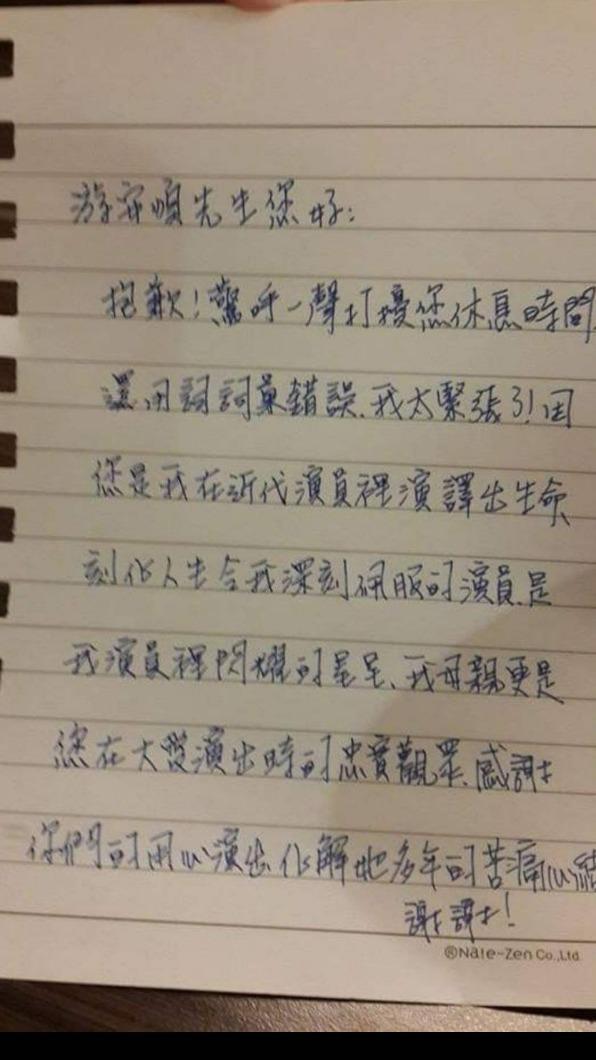 游安順先生您好:
抱歉!驚呼一聲打擾您休息時間
還用詞詞彙錯誤、我太緊張了!因
您是我在近代演員裡演譯出生命
刻化人生令我深刻佩服的演員是
我演員裡閃耀的星星、我母親更是
您在大愛演出時的忠實觀眾、感謝
你們的用心演出化解她多年的苦痛心結
謝謝!
®Nate-Zen Co.,Ltd.